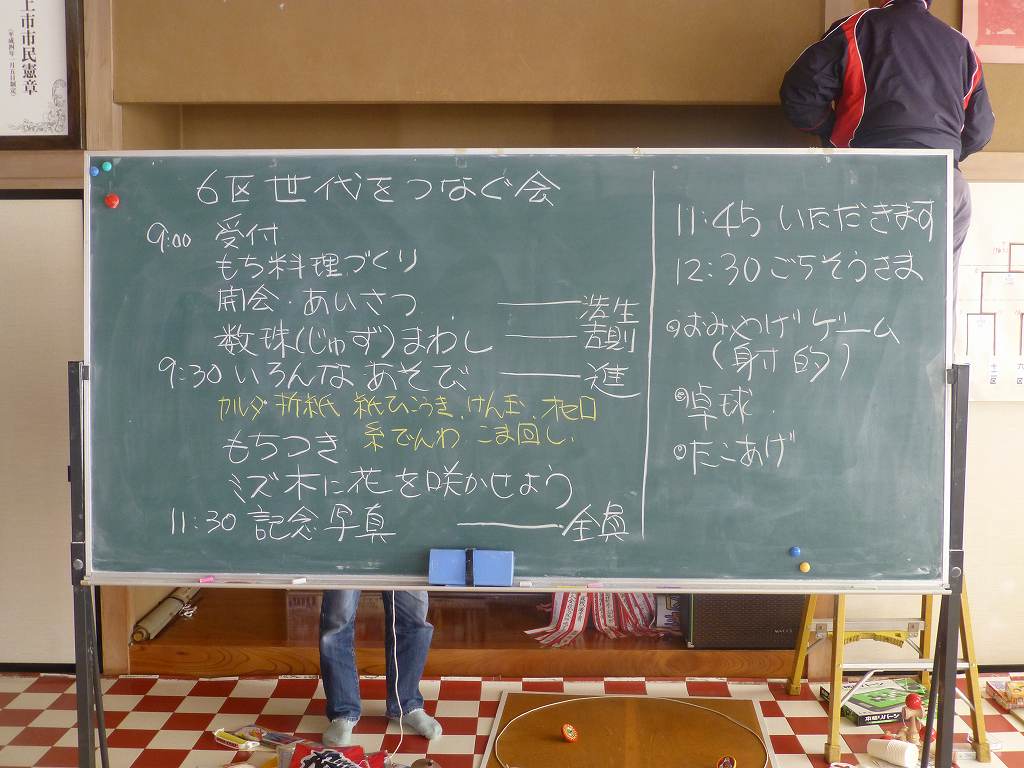 上市市民憲章
6区世代をつなぐ会
9:00 受付
もち料理づくり
開会・あいさつ ——— 浩生
数珠(じゅず)まわし ——— 吉則
9:30 いろんなあそび ——— 進
カルタ 折紙 紙ひこうき、けん玉 オセロ
糸でんわ こま回し、
もちつき
ミズ木に花を咲かせよう
11:30 記念写真 ——— 全員
11:45 いただきます
12:30 ごちそうさま
◎おみやげゲーム
(射的)
◎卓球
◎たこあげ
本格リバーシ